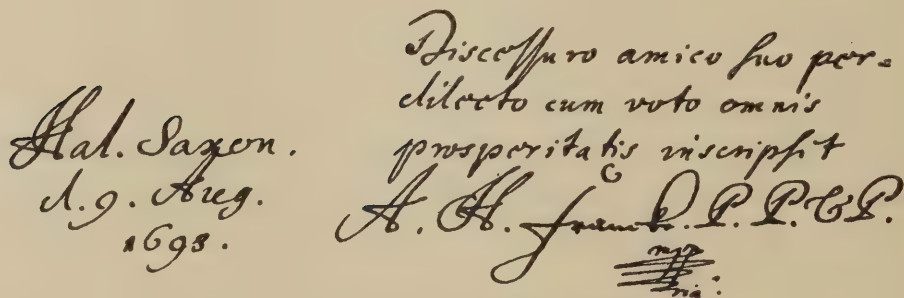 Hal. Saxon.
d. 9. Aug.
1693.
Discessuro amico suo per=
dilecto cum voto omnis
prosperitatis inscripsit
A. H. Francke. P. P. & P.
mppria.